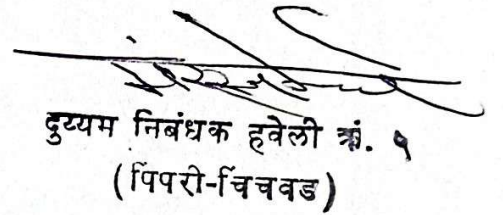 दुय्यम निबंधक हवेली क्रं. ५
(पिंपरी-चिंचवड)